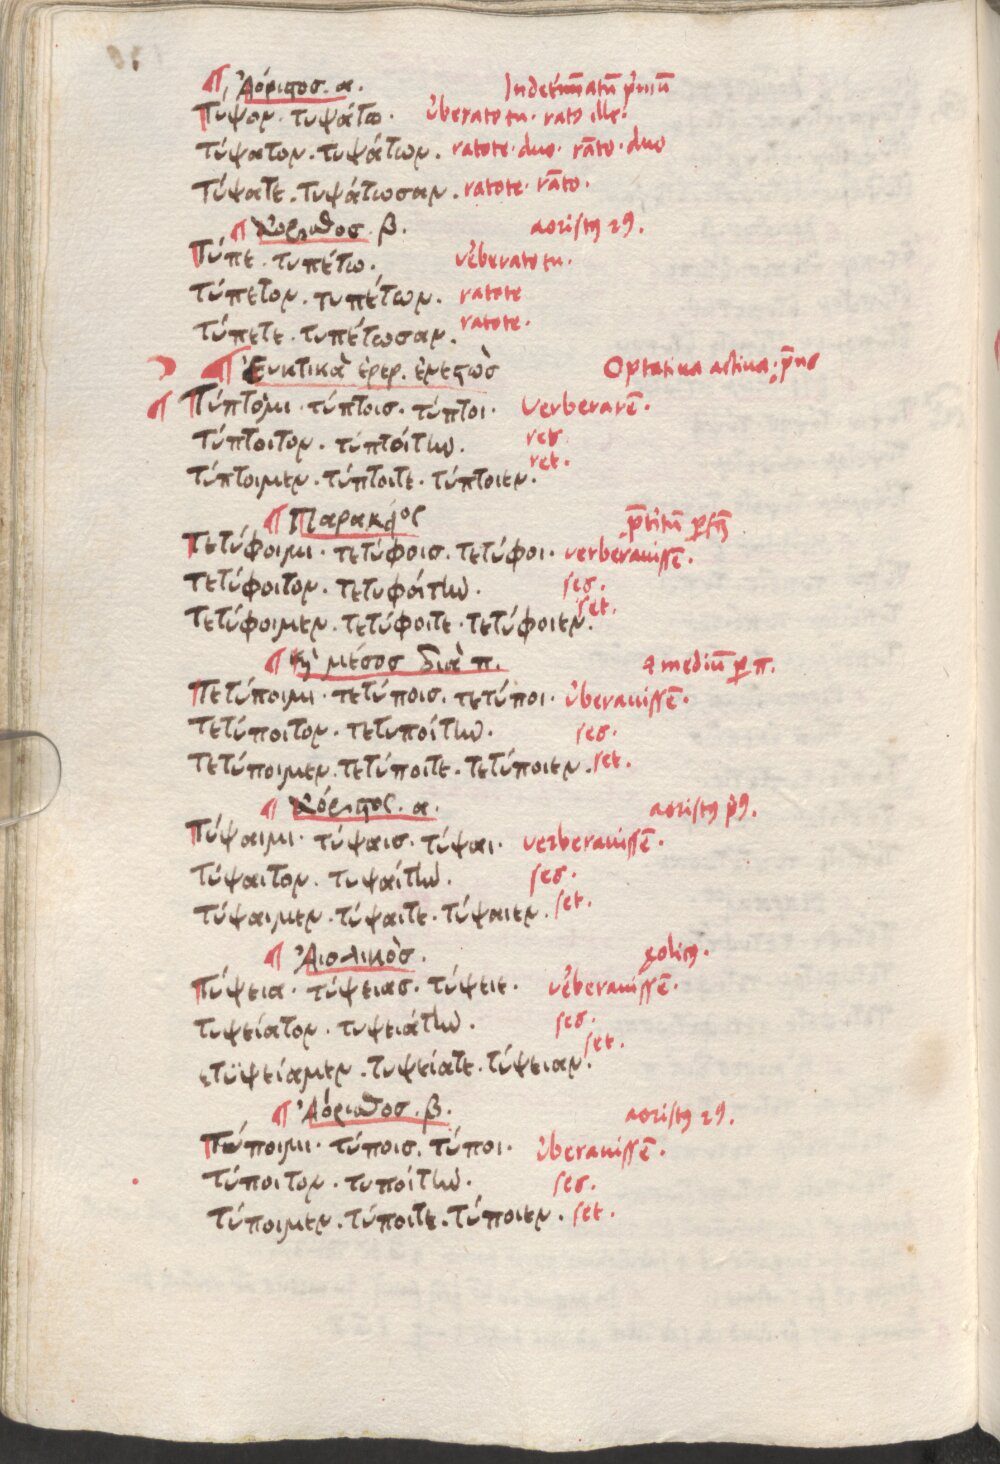 ¶ Ἀόριστος. α. Indetermīatū p̄mū
Τύψον. τυψάτω. ǔberato tu. rato ille.
τύψατον. τυψάτων. ratote. duo. rāto. duo
τύψατε. τυψάτωσαν. ratote. rāto.
¶ Ἀόριστος. β. aoristꝰ 2ꝰ.
Τύπε. τυπέτω. v̌berato tu.
τύπετον. τυπέτων. ratote
τύπετε. τυπέτωσαν. ratote.
¶ Ἐυκτικὰ ἐνερ. ἐνεστὼσ Optatiua actiua. p̄ns
¶ Τύπτοιμι. τύπτοισ. τύπτοι. Verberarē.
τύπτοιτον. τυπτόιτην. res.
τύπτοιμεν. τύπτοιτε. τύπτοιεν. ret.
¶ Παρακ{ος p̄titū ꝑfc̄
Τετύφοιμι. τετύφοισ. τετύφοι. verberauissē.
τετύφοιτον. τετυφόιτην. ses.
τετύφοιμεν. τετύφοιτε. τετύφοιεν. set.
¶ μέσοσ διὰ π. & mediū ꝑ π.
Τετύποιμι. τετύποισ. τετύποι. ǔberauissē.
τετύποιτον. τετυποίτην. ses.
τετύποιμεν. τετύποιτε. τετύποιεν. set.
¶ Ἀόριστος. α. aoristꝰ pꝰ.
Τύψαιμι. τύψαισ. τύψαι. verberauissē.
τύψαιτον. τυψαίτην. ses.
τύψαιμεν. τύψαιτε. τύψαιεν. set.
¶ Ἀιολικὸσ. ęolicꝰ.
Τύψεια. τύψειασ. τύψειε. v̌berauissē.
τυψείατον. τυψειάτην. ses.
τυψείαμεν. τυψείατε. τύψειαν. set.
¶ Ἀόριστοσ. β. aoristꝰ 2ꝰ.
Τύποιμι. τύποισ. τύποι. ǔberauissē.
τύποιτον. τυποίτην. ses.
τύποιμεν. τύποιτε. τύποιεν. set.